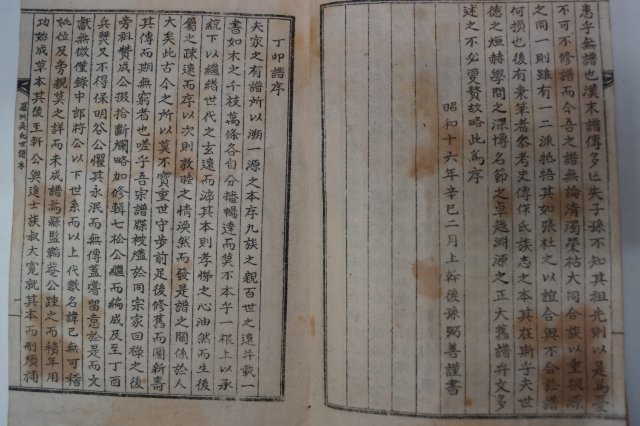 愚乎無譜也漢末譜傳多亡失子孫不知其祖先則以是爲憂
不可不修譜而今吾之譜無論淸濁榮枯大同合族以重根源
之同一則雖有一二派牴牾其如張杜之以誼合與不合於譜
何損也後有秉筆者參考史傳作氏族志之本其在斯乎夫世
德之烜赫學問之深博名節之卓越淵源之正大舊譜弁文多
述之不必更贅故略此爲序
昭和十六年辛巳二月上澣後孫弼善謹書
丁卯譜序
夫家之有譜所以溯一源之本序九族之親百世之遠幷載一
書如木之千枝萬條各自分播暢達而莫不本乎一根上以承
統下以繼緖世代之玄遠而諦其本則孝悌之心油然而生後
屬之疎遠而序以次則敦睦之情渙然而發是譜之關係於人
大矣此古今之所以莫不寶重世守步前足後修舊而圖新壽
其傳而期無窮者也嗟乎吾宗譜牒被燼於同宗家回祿之後
旁祖贊成公掇拾斷爛略加修輯七松公繼而編成及至丁酉
兵燹又不得保明谷公懼其永泯而無傳蓋嘗留意於是而文
獻無徵僅錄中郞將公以下世系而以上代數名諱已無可稽
妣位及旁親莫之詳而未成譜萬縣監韜庵公踵之而積年用
功始成草本其後王新公與進士族叔大寬就其本而刪煩補
羅州吳氏世譜序